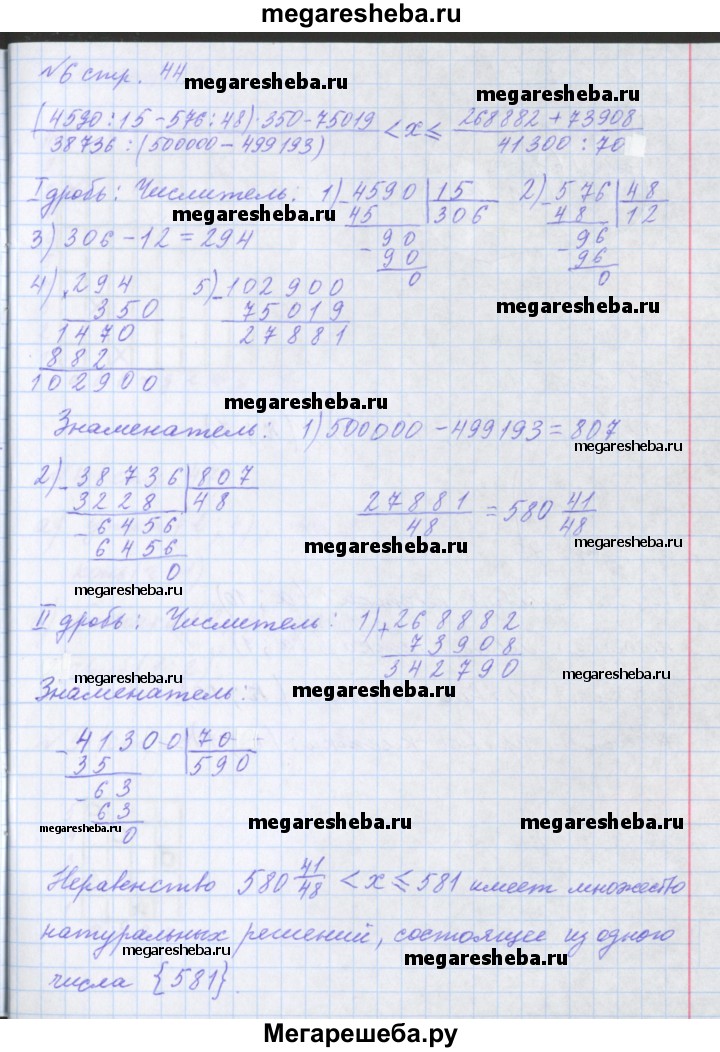 megaresheba.ru
№6 стр. 44
megaresheba.ru
megaresheba.ru
(4590:15-576:48)·350-75019 < x ≤ 268882+73908
38736:(500000-499193) 41300:70
I дробь: Числитель: 1) 4590 | 15 2) 576 | 48
megaresheba.ru
45 306 48 12
3) 306-12=294 -90 -96
90 96
0 0
4) 294 5) -102900
350 75019
megaresheba.ru
1470 27881
882
102900
megaresheba.ru
Знаменатель: 1) 500000-499193=807
megaresheba.ru
2) -38736 | 807
3228 48 27881 = 580 41
-6456 48 48
6456
megaresheba.ru
0
megaresheba.ru
megaresheba.ru
II дробь: Числитель: 1) +268882
73908
342790
megaresheba.ru
megaresheba.ru
megaresheba.ru
Знаменатель:
-41300 | 70
35 590
-63
63
0
megaresheba.ru
megaresheba.ru
megaresheba.ru
Неравенство 580 41/48 < x ≤ 581 имеет множество
натуральных решений, состоящее из одного
megaresheba.ru
megaresheba.ru
числа {581}.
Мегарешеба.ру